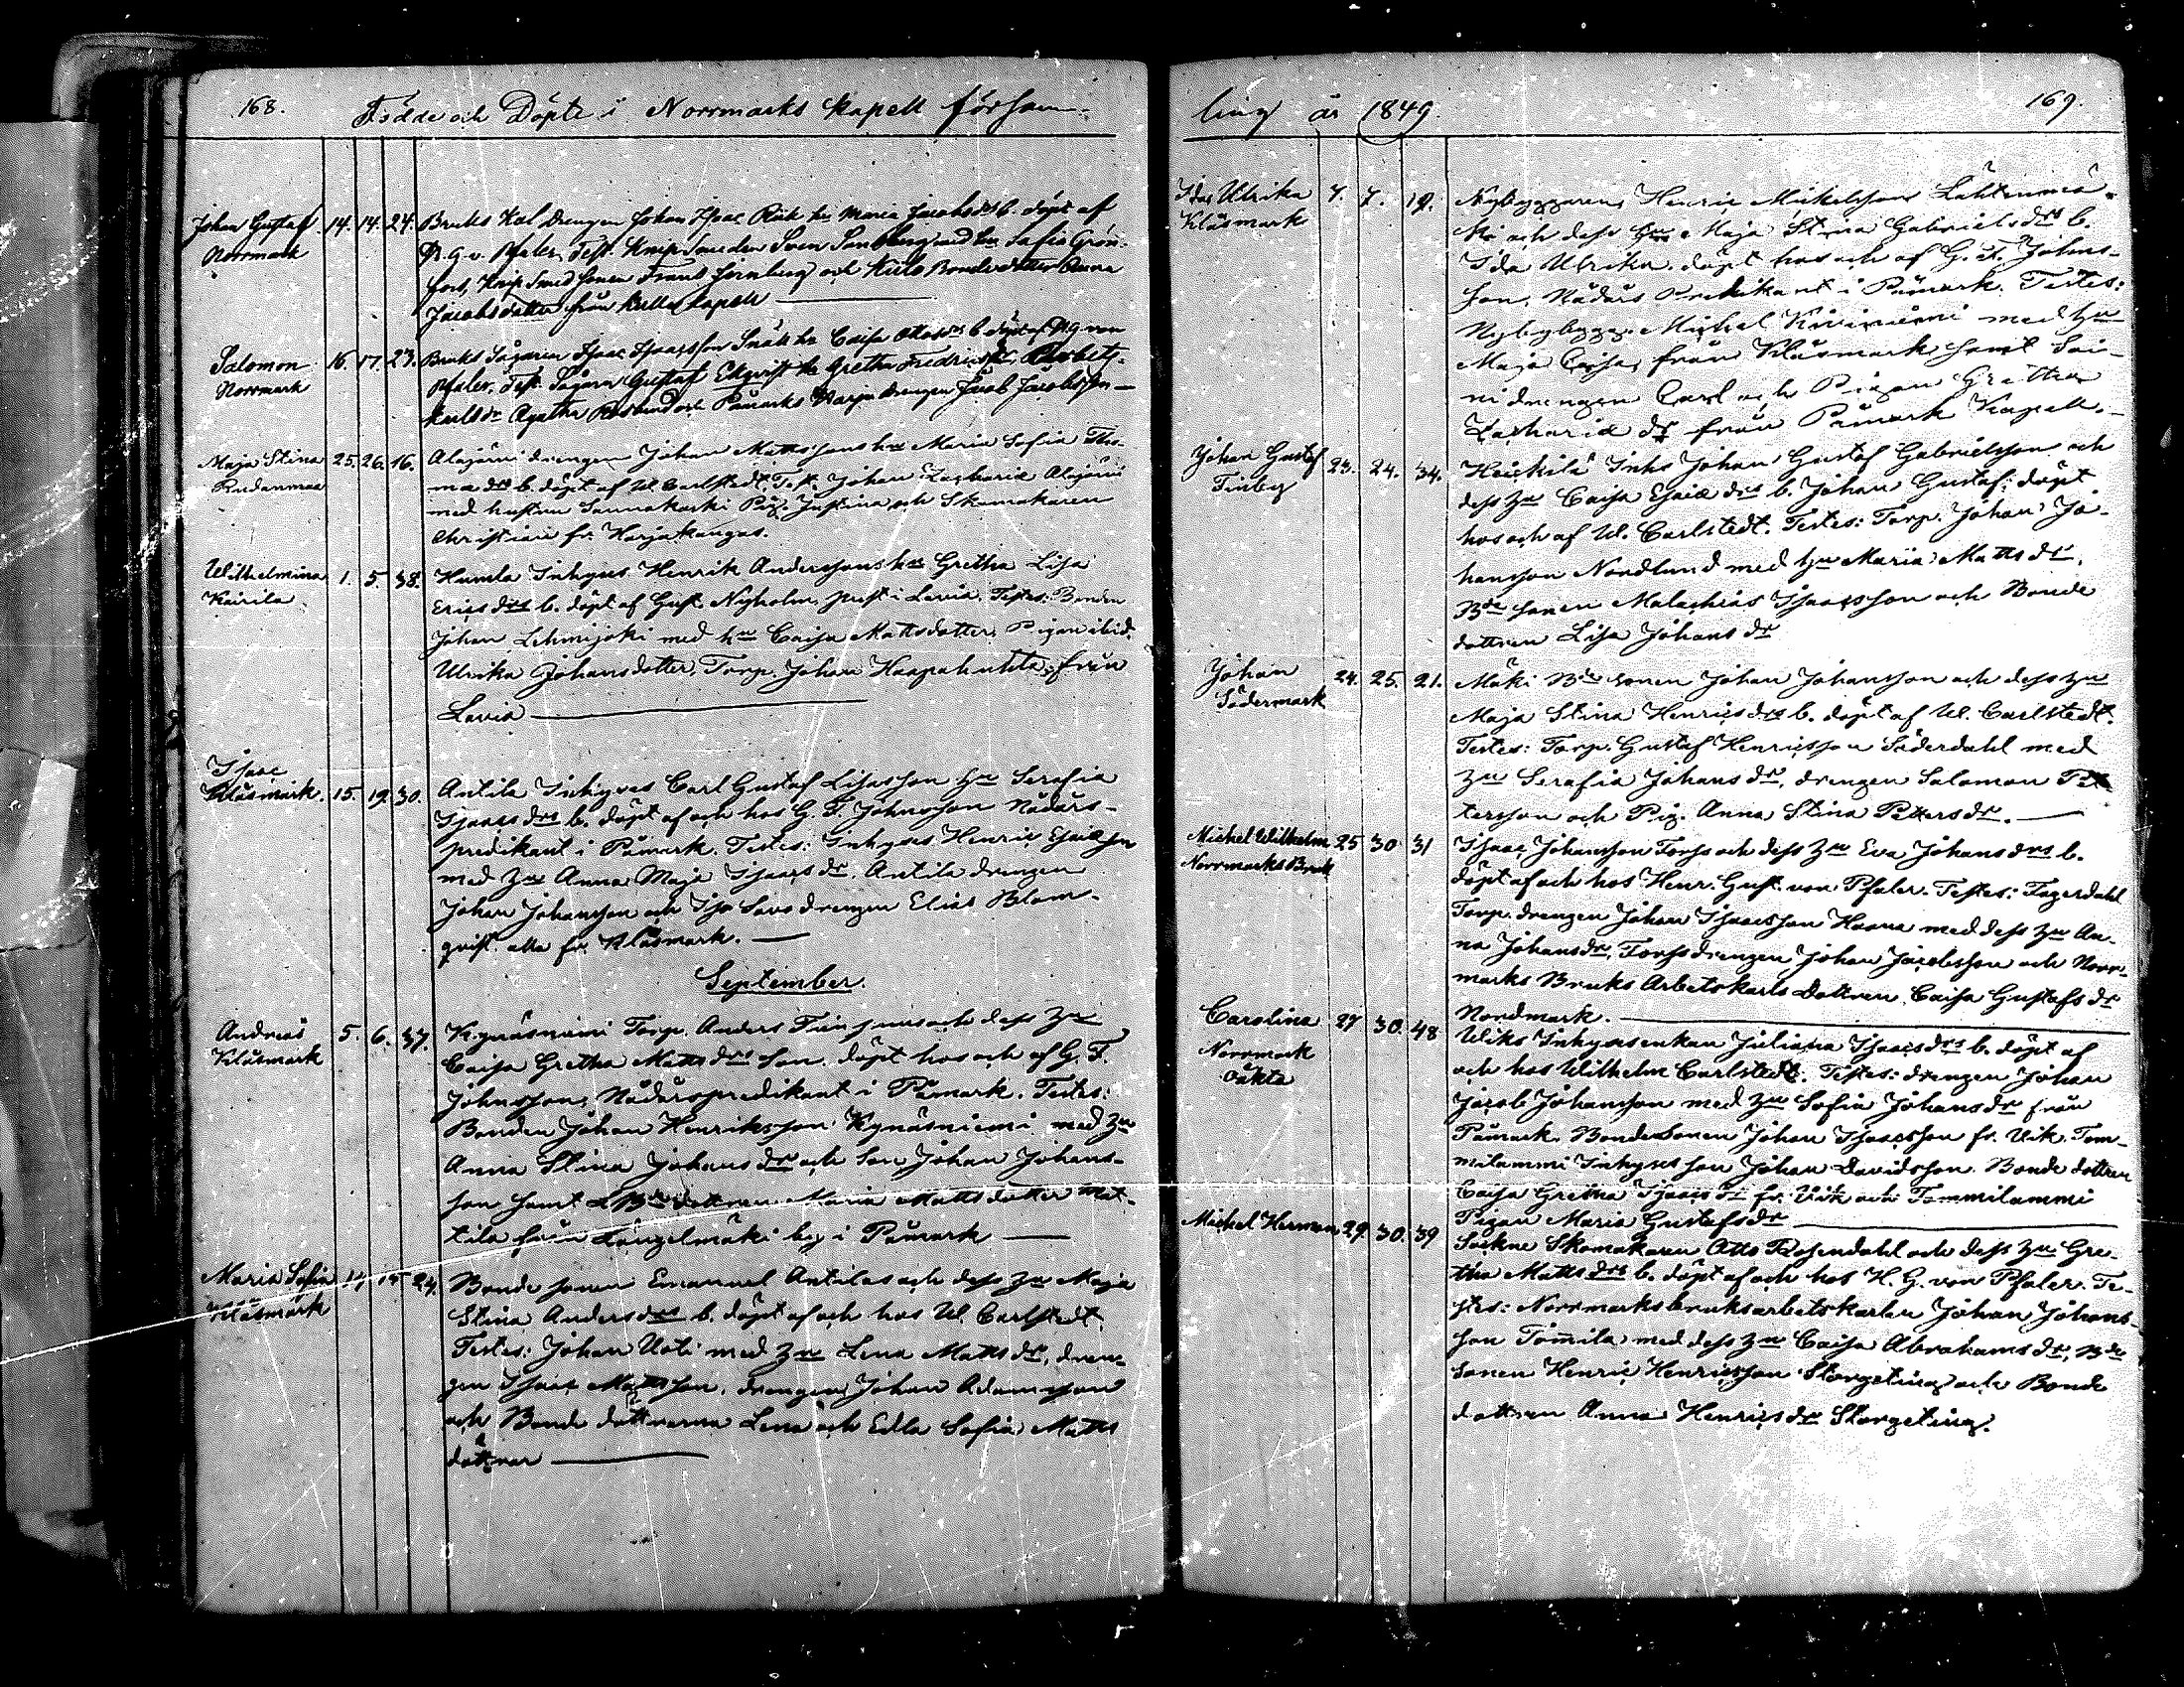 168. Födde och Döpte i Norrmarks Kapell församling år 1849. 169.
Johan Gustaf 14. 14. 24. Bruks Kol drengen Johan Isaac
Norrmark
hu Maria Jacobsdrs b. döpt af
H. G. v. Pfaler, Test. Knip Smeden Sven Sandberg med hu Sofia Grön-
fors, Knip Smed Sonen Frans och Bonde dotter Anna
Jacobsdotter från Kapell
Salomon 16. 17. 23. Bruks Sågaren Isaac Isaacsson hu Caisa Ottosdrs b. döpt af H. G. von
Norrmark
Pfaler, Test. Sågaren Gustaf hu Gretha Fredricsdr, Arbets-
karlsdr Agatha och Påmarks drengen Jacob Jacobsson
Maja Stina 25. 26. 16. Alajärvi drengen Johan Mattssons hus Maria Sofia Tho-
mæ drs b. döpt af W. Carlstedt, Test. Johan Zachariæ Alajärvi
med hustru Pig. Justina och Skomakaren
Christian fr. Harjakangas.
Wilhelmina 1. 5. 38. Humla Inhyses Henrik Anderssons hus Gretha Lisa
Kairila
Erics drs b. döpt af Gust. Nyholm, prest i Lavia, Testes: Bonden
Johan Lehmijoki med hu Caisa Mattsdotter, Pigan ibid.
Ulrika Johansdotter, Torp. Johan Haapahuhta, från
Lavia
Isaac
Klåsmark. 15. 19. 30. Antila Inhyses Carl Gustaf hu Serafia
Isaacs drs b. döpt af och hos G. F. Johnsson Nådårs-
predikant i Påmark. Testes: Inhyses Henric Esaiæson
med hu Anna Maja Isaacs dr, Antila drengen
Johan Johansson och Iso Savo drengen Elias Blom-
qvist. alla fr. Klåsmark.
September.
Andreas 5. 6. 37. Kynäsniemi Torp. Anders och dess hu
Klåsmark
Caisa Gretha Matts drs Son. döpt hos och af G. F.
Johnsson, Nådårspredikant i Påmark. Testes:
Bonden Johan Henriksson Kynäsniemi med hu
Anna Stina Johans dr och Son Johan Johans-
son samt Bde dottren Maria Mattsdotter Mat-
tila från Längelmäki by i Påmark
Maria Sofia 14 15 24. Bonde sonen Emanuel Antilas och dess hu Maja
Klåsmark
Stina Anders drs b. döpt af och hos W. Carlstedt,
Testes: Johan Uoti med hu Lena Matts dr, dren-
gen Isaac Mattsson, drengen Johan Adamsson
och Bonde döttrarna Lena och Edla Sofia Matts
döttrar
Ida Ulrika 7. 7. 19. Nybyggaren Henric Mickelsson Lähtenmä-
Klåsmark
ki och dess hu Maja Stina Gabriels drs b.
Ida Ulrika. döpt hos och af G. F. Johns-
son, Nådårs Predikant i Påmark. Testes:
Nybygg. Michel Kiviniemi med hu
Maja Caisa, från Klåsmark samt Soi-
ni drengen Carl och Pigan Gretha
Zachariæ dr från Påmark Kapell.
Johan Gustaf 23. 24. 34. Heickilä Inhs Johan Gustaf Gabrielsson och
Finby
dess hu Caisa Esaiæ drs b. Johan Gustaf; döpt
hos och af W. Carlstedt. Testes: Torp. Johan Jo-
hansson Nordlund med hu Maria Matts dr,
Bde sonen Malachias Isaacsson och Bonde
dottren Lisa Johans dr
Johan 24. 25. 21. Mäki Bde sonen Johan Johansson och dess hu
Södermark
Maja Stina Henrics drs b. döpt af W. Carlstedt.
Testes: Torp. Gustaf Henricsson Söderdahl med
hu Serafia Johans dr, drengen Salomon Pet-
tersson och Pig. Anna Stina Petters dr.
Michel Wilhelm 25 30 31 Isaac Johansson Torss och dess hu Eva Johans drs b.
Norrmarks Bruk
döpt af och hos Henr. Gust. von Pfaler. Testes: Fagerdahl
Torp. drengen Johan Isaacsson Haana med dess hu An-
na Johans dr, Torss drengen Johan Jacobsson och Norr-
marks Bruks Arbetskarls Dottren, Caisa Gustafs dr
Nordmark.
Carolina 27 30. 48 Wiks Inhysesenkan Juliana Isaacs drs b. döpt af
Norrmark
oäkta
och hos Wilhelm Carlstedt. Testes: drengen Johan
Jacob Johansson med hu Sofia Johans dr från
Påmark. Bonde Sonen Johan Isaacsson fr. Wik. Tom-
milammi Inhyses son Johan Davidsson. Bonde dottren
Caisa Gretha Isaacs dr fr. Wik och Tommilammi
Pigan Maria Gustafs dr
Michel Herman 29. 30. 39 Sockne Skomakaren Otto Rosendahl och dess hu Gre-
tha Matts drs b. döpt af och hos H. G. von Pfaler. Te-
stes: Norrmarks bruksarbetskarlen Johan Johans-
son Tömila med dess hu Caisa Abrahams dr, Bde
sonen Henric Henricsson Storgeting och Bonde
dottren Anna Henrics dr Storgeting.